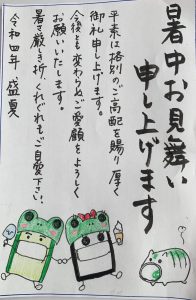 暑中お見舞い
申し上げます
平素は格別のご高配を賜り厚く
御礼申し上げます。
今後とも変わらぬご愛顧をよろしく
お願いいたします。
暑さ厳しき折、くれぐれもご自愛下さい。
令和四年 盛夏